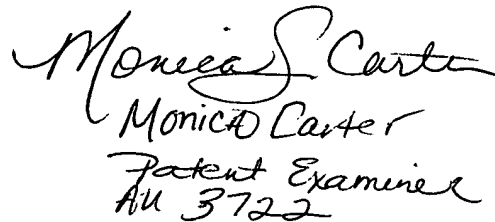 Monica S Carter
Monica Carter
Patent Examiner
AU 3722